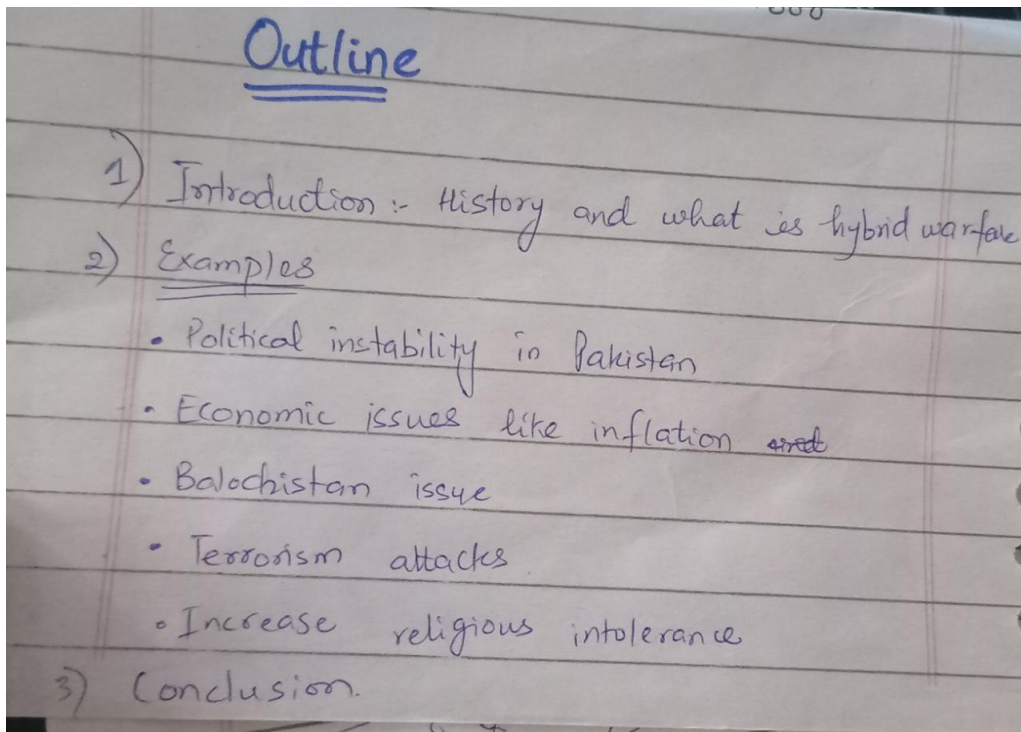 Outline
1) Introduction :- History and what is hybrid warfare
2) Examples
• Political instability in Pakistan
• Economic issues like inflation
• Balochistan issue
• Terrorism attacks
• Increase religious intolerance
3) Conclusion.